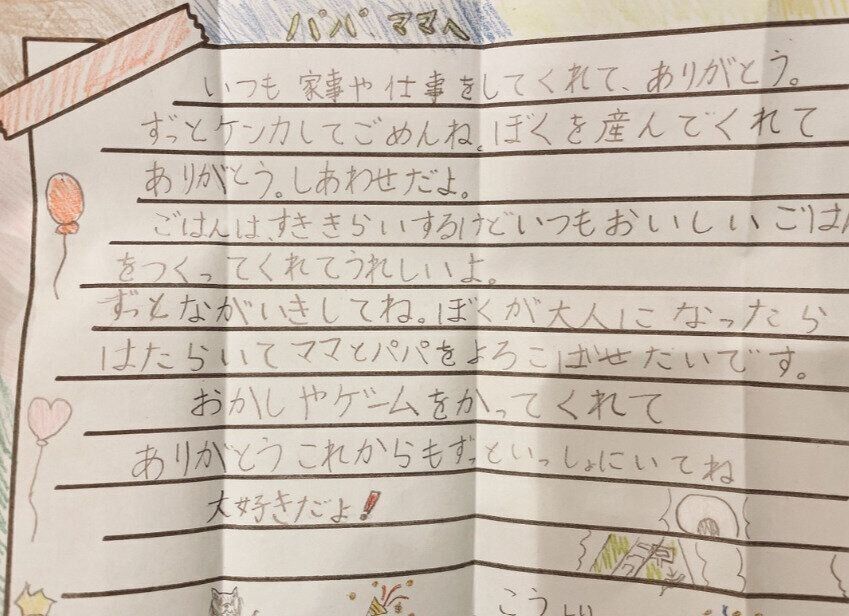 パパ、ママへ
いつも家事や仕事をしてくれて、ありがとう。
ずっとケンカしてごめんね。ぼくを産んでくれて
ありがとう。しあわせだよ。
ごはんは、すききらいするけどいつもおいしいごはん
をつくってくれてうれしいよ。
ずっとながいきしてね。ぼくが大人になったら
はたらいてママとパパをよろこばせたいです。
おかしやゲームをかってくれて
ありがとうこれからもずっといっしょにいてね
大好きだよ!